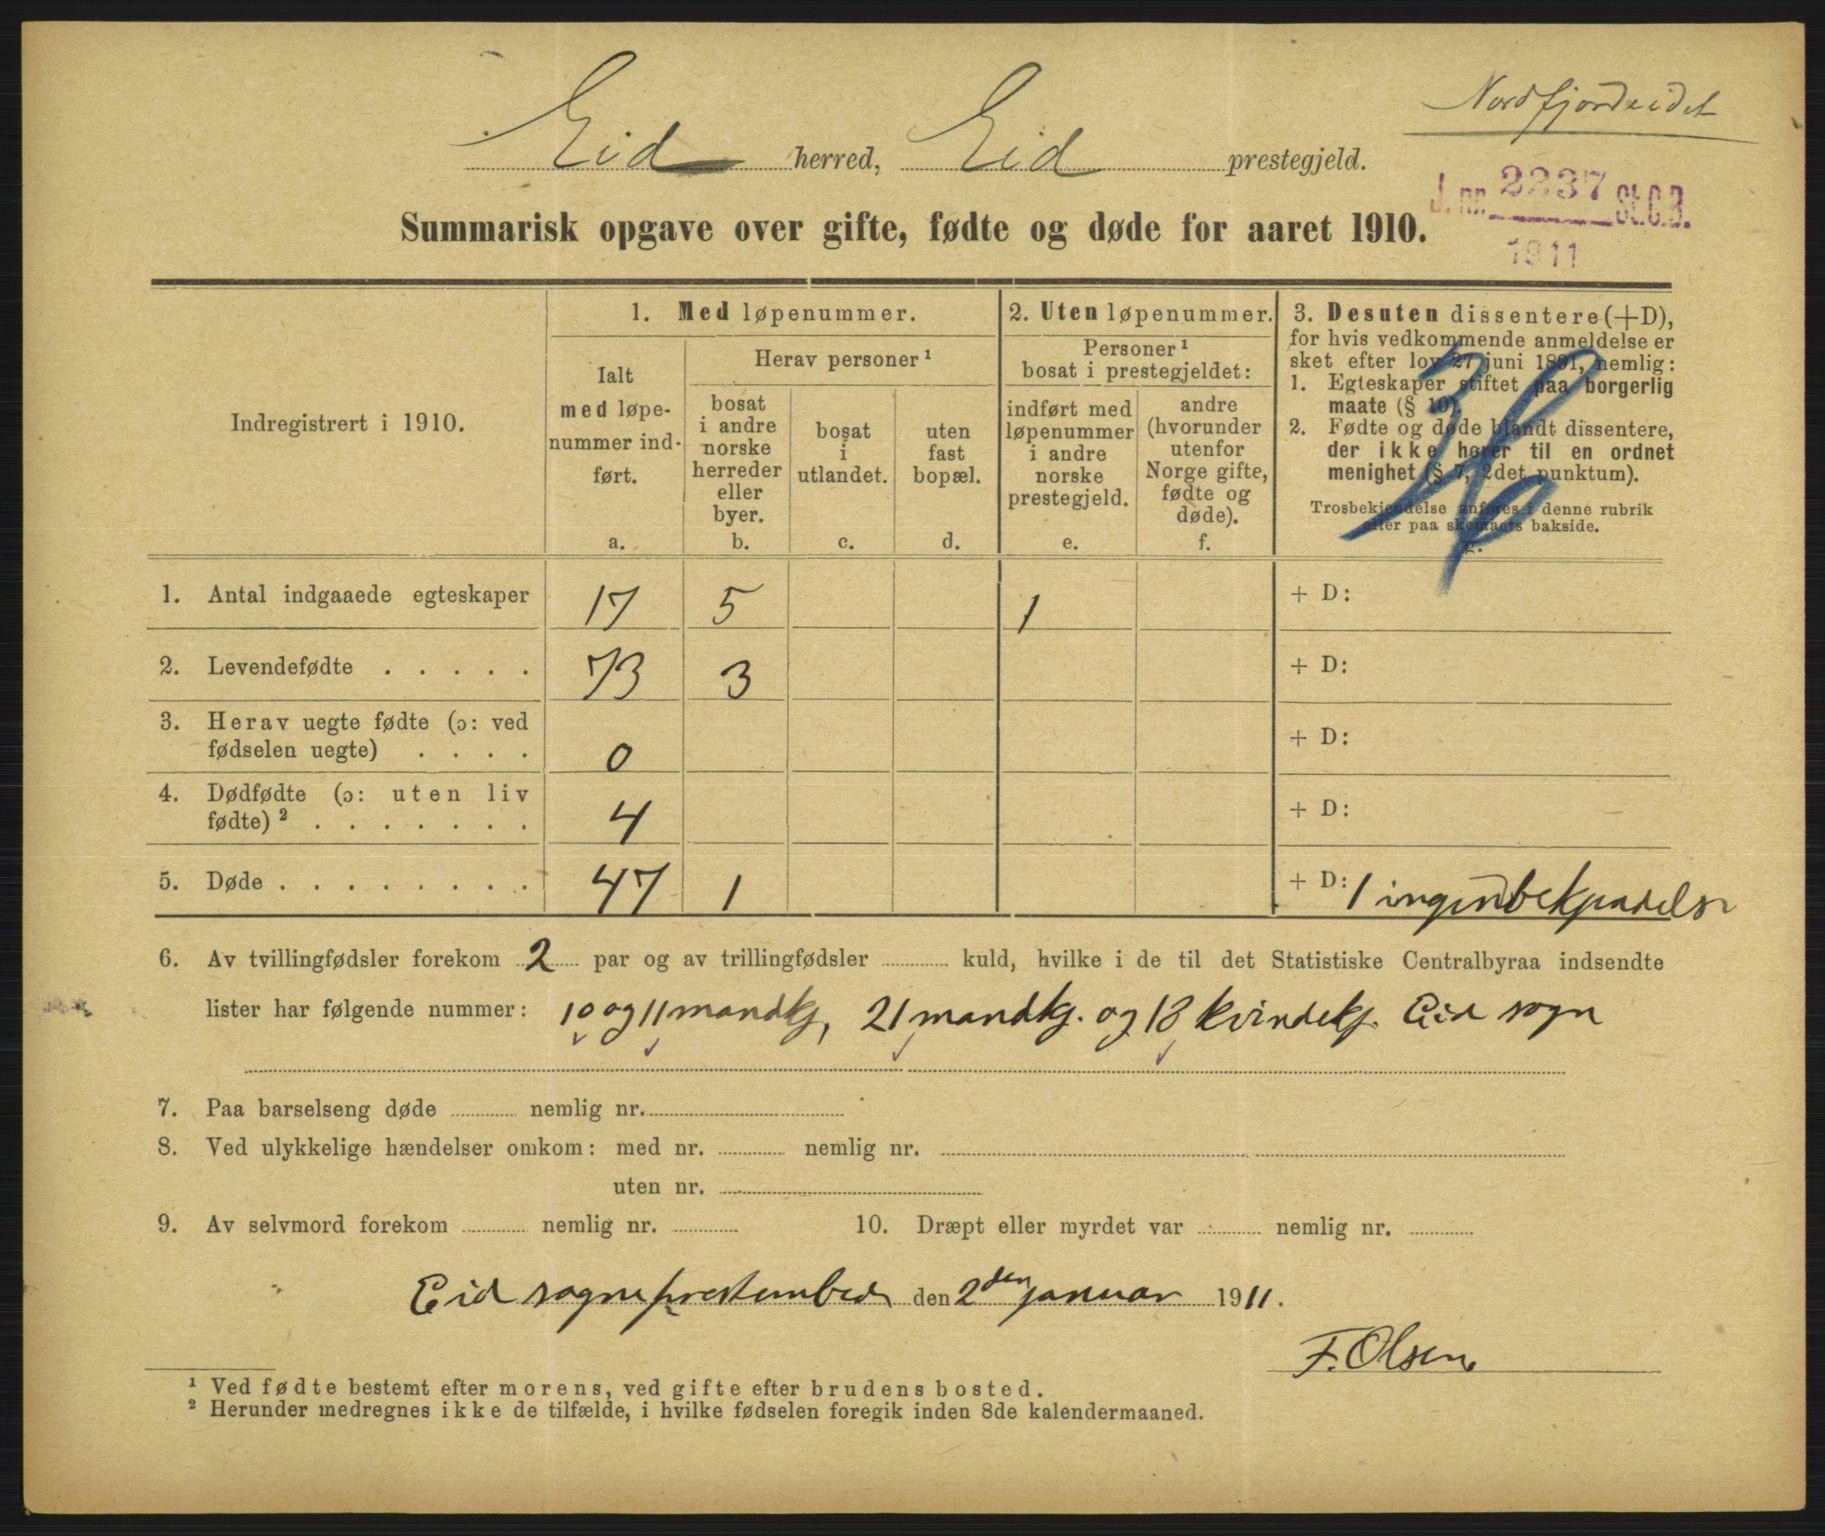 Nordfjordeidet
Eid herred, Eid prestegjeld.
J. nr. 2237 St.C.B.
1911
Summarisk opgave over gifte, fødte og døde for aaret 1910.
Indregistrert i 1910.
1. Med løpenummer.
Ialt
med løpe-
nummer ind-
ført.
a.
Herav personer ¹
bosat
i andre
norske
herreder
eller
byer.
b.
bosat
i
utlandet.
c.
uten
fast
bopæl.
d.
2. Uten løpenummer.
Personer ¹
bosat i prestegjeldet:
indført med
løpenummer
i andre
norske
prestegjeld.
e.
andre
(hvorunder
utenfor
Norge gifte,
fødte og
døde).
f.
3. Desuten dissentere (+D),
for hvis vedkommende anmeldelse er
sket efter lov 27 juni 1891, nemlig:
1. Egteskaper stiftet paa borgerlig
maate (§ 10).
2. Fødte og døde blandt dissentere,
der ikke hører til en ordnet
menighet (§ 7, 2det punktum).
Trosbekjendelse anføres i denne rubrik
eller paa skemaets bakside.
g.
1. Antal indgaaede egteskaper 17 5 1 + D:
2. Levendefødte . . . . . 73 3 + D:
3. Herav uegte fødte (ɔ: ved
fødselen uegte) . . . . 0 + D:
4. Dødfødte (ɔ: uten liv
fødte) ² . . . . . . . 4 + D:
5. Døde . . . . . . . . 47 1 + D: 1 ingen bekjendelse
6. Av tvillingfødsler forekom 2 par og av trillingfødsler kuld, hvilke i de til det Statistiske Centralbyraa indsendte
lister har følgende nummer: 10 og 11 mandkj, 21 mandkj. og 18 kvindekj. Eid sogn
7. Paa barselseng døde nemlig nr.
8. Ved ulykkelige hændelser omkom: med nr. nemlig nr.
uten nr.
9. Av selvmord forekom nemlig nr. 10. Dræpt eller myrdet var nemlig nr.
Eid sogneprestembede den 2den januar 1911.
F. Olsen
¹ Ved fødte bestemt efter morens, ved gifte efter brudens bosted.
² Herunder medregnes ikke de tilfælde, i hvilke fødselen foregik inden 8de kalendermaaned.